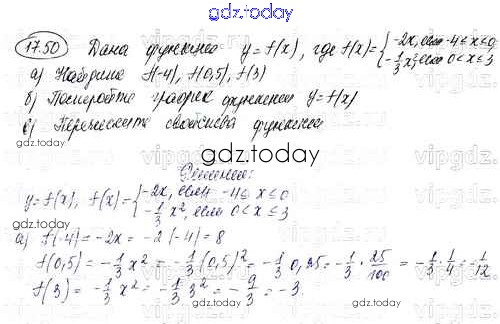 gdz.today
17.50 Дана функция y = f(x), где f(x) = { -2x, если -4 ≤ x ≤ 0
-1/3 x², если 0 < x ≤ 3
а) Найдите f(-4), f(0,5), f(3)
б) Постройте график функции y = f(x)
в) Перечислите свойства функции
gdz.today
Решение:
y = f(x), f(x) = { -2x, если -4 ≤ x ≤ 0
-1/3 x², если 0 < x ≤ 3
а) f(-4) = -2x = -2(-4) = 8
f(0,5) = -1/3 x² = -1/3 (0,5)² = -1/3 0,25 = -1/3 · 25/100 = -1/3 · 1/4 = -1/12
f(3) = -1/3 x² = -1/3 3² = -9/3 = -3.
gdz.today